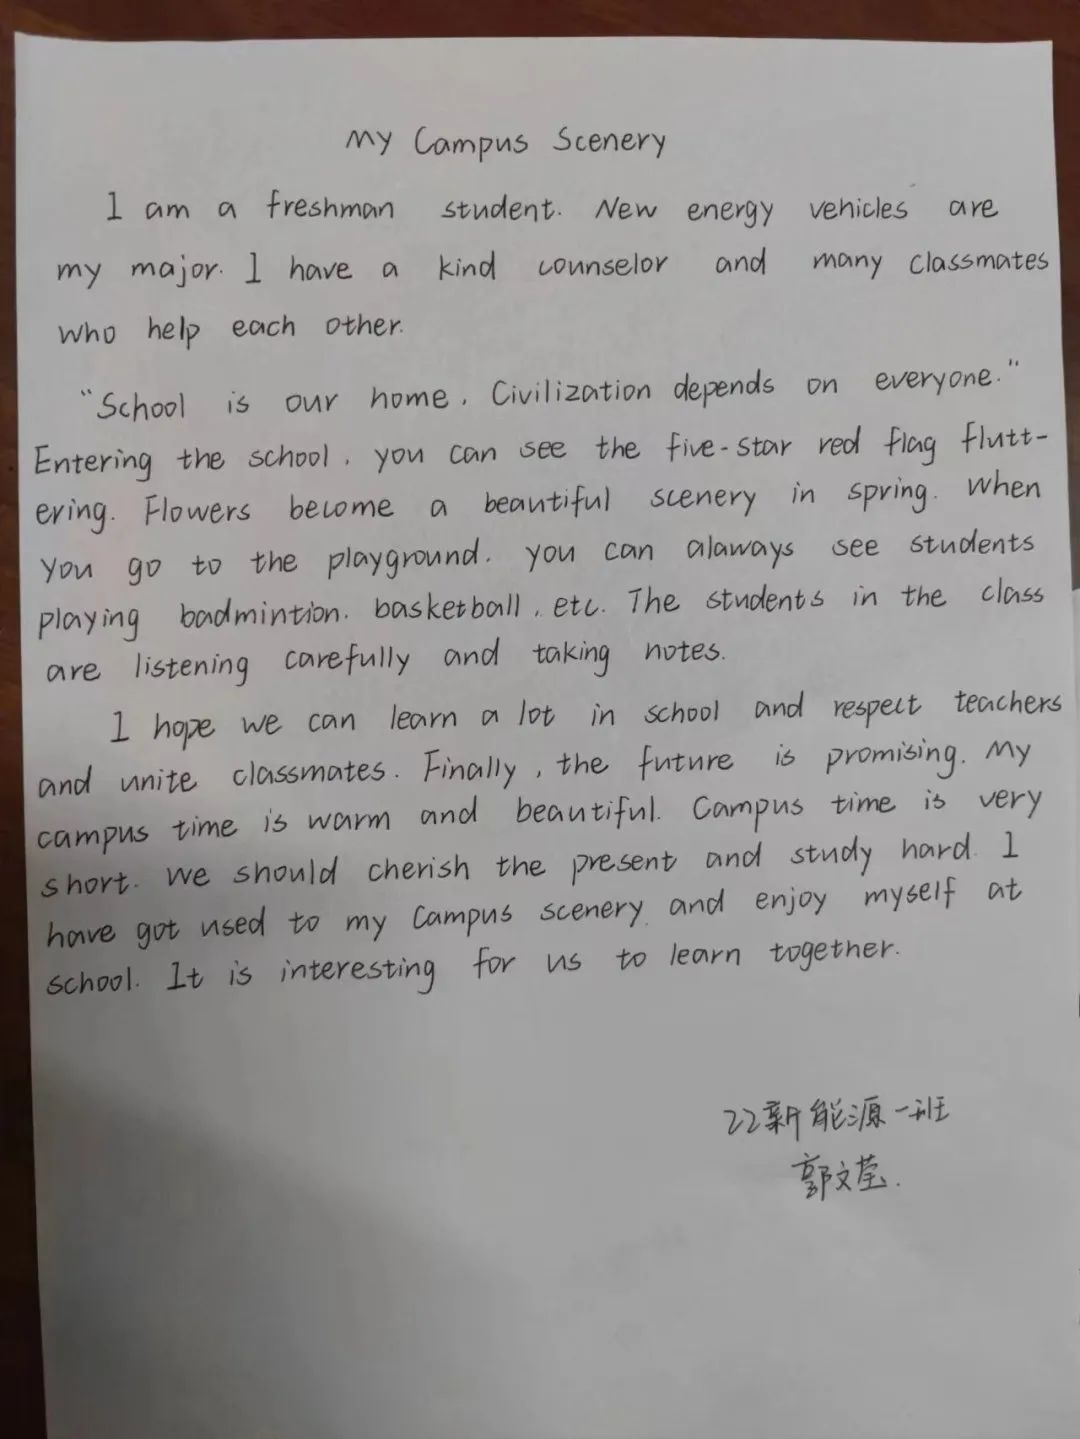 My Campus Scenery
I am a freshman student. New energy vehicles are
my major. I have a kind counselor and many classmates
who help each other.
"School is our home. Civilization depends on everyone."
Entering the school, you can see the five-star red flag flutt-
ering. Flowers become a beautiful scenery in spring. When
you go to the playground. you can alaways see students
playing badmintion. basketball, etc. The students in the class
are listening carefully and taking notes.
I hope we can learn a lot in school and respect teachers
and unite classmates. Finally, the future is promising. My
campus time is warm and beautiful. Campus time is very
short. We should cherish the present and study hard. I
have got used to my campus scenery and enjoy myself at
school. It is interesting for us to learn together.
22新能源一班
郭文莹.